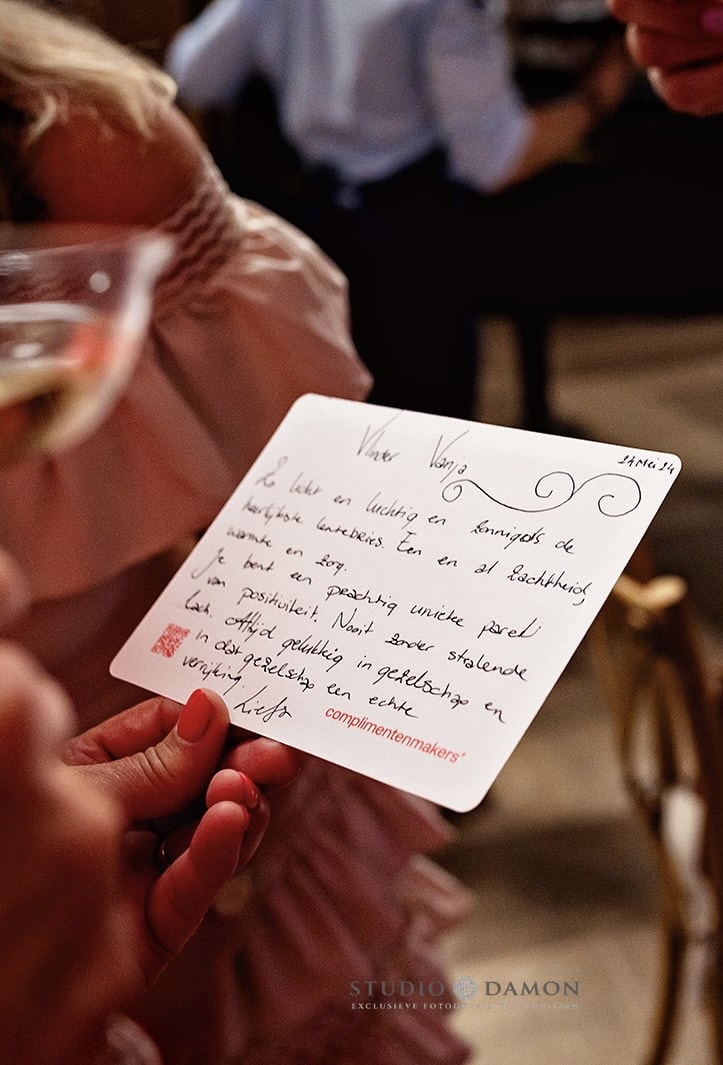 Vlinder Vanja
24 Mei 24
Zo licht en luchtig en zonnigals de
heerlijkste lentebries. Een en al zachtheid,
warmte en zorg.
Je bent een prachtig unieke parel
van positiviteit. Nooit zonder stralende
lach. Altijd gelukkig in gezelschap en
in dat gezelschap een echte
verrijking. Liefs
complimentenmakers
STUDIO DAMON
EXCLUSIEVE